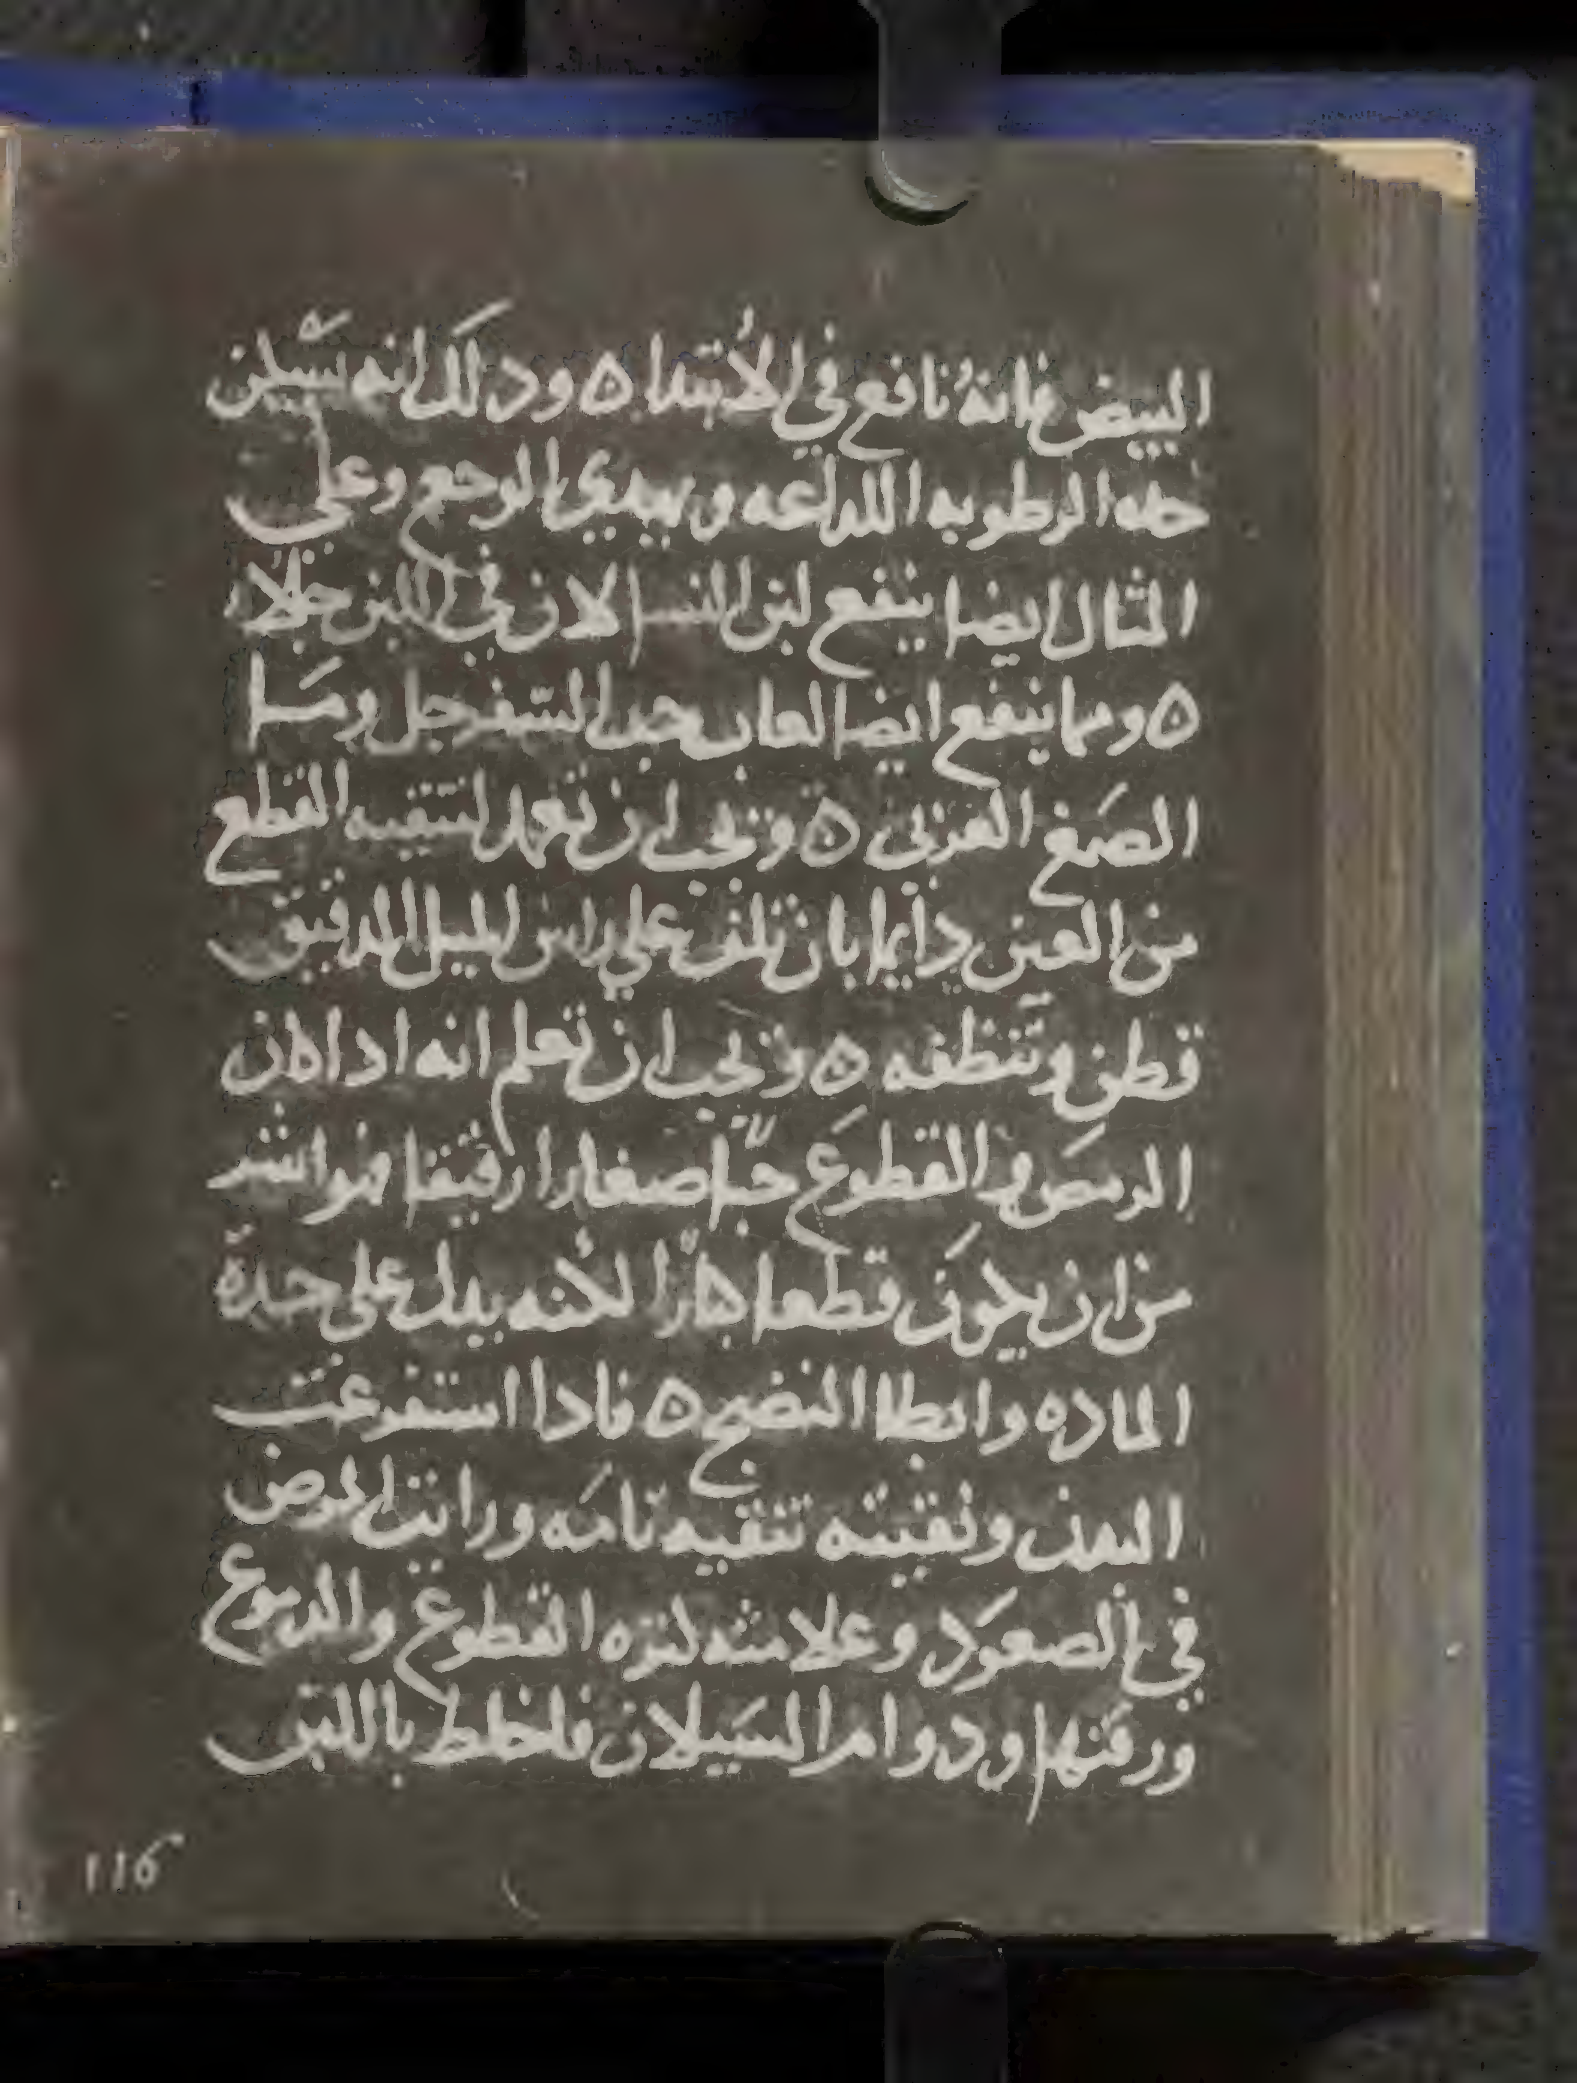 البيض فانهُ نافع في الأبتدا ه ودلك انه يسَّكن
حده الرطوبه اللداعه ويهدي الوجع وعلي
المثال ايضا ينفع لبن النسا لان في اللبن جلاء
ه ومما ينفع ايضا لعاب حب السّفرجل ومَا
الصَمغ العربي ه ويجب ان تعهد لتنقيه القطع
من العين دايما بان تلف علي راس الميل الدقيق
قطن وتنظفه ه ويجب ان تعلم انه ادا كان
الرمصَ والقطوعَ حبًّا صغارا رقيقا فهو اشر
من ان يكوَن قطعا كبارًا لأنه يدل علي حدة
الماده وابطا النضج ه فادا استفرغت
البدن ونقيته تنقيه تامَه ورايت المرض
في الصعوَد وعلامته كثره القطوع والدموع
ورقتها ودوام السَيلان فاخلط باللبن
116